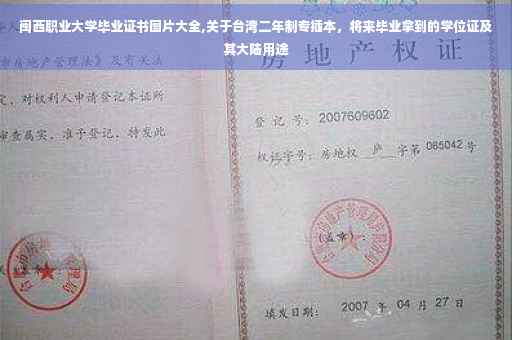 闽西职业大学毕业证书图片大全,关于台湾二年制专插本，将来毕业拿到的学位证及
其大陆用途
房地产权证
市房地产管理法》及有关
定，对权利人申请登记本证所
审查属实，准予登记，特发此
登 记 号：2007609602
权证字号：房地权 庐 字第 085042 号
(盖章)：
填发日期： 2007 年 04 月 27 日